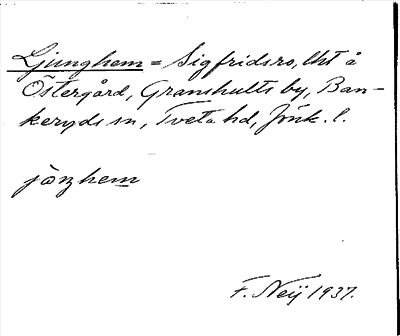 Ljunghem = Sigfridsro, lht å
Östergård, Granshults by, Ban-
keryds sn, Tveta hd, Jönk. l.
F. Neij 1937.